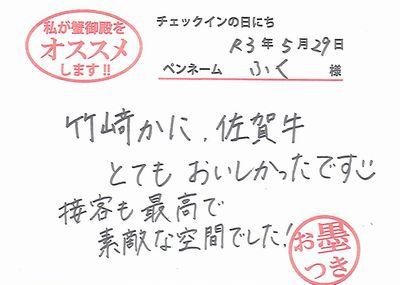 私が蟹御殿を
オススメ
します!!
チェックインの日にち
R3年5月29日
ペンネーム ふく 様
竹崎かに、佐賀牛
とても おいしかったです
接客も最高で
素敵な空間でした!
お墨
つき